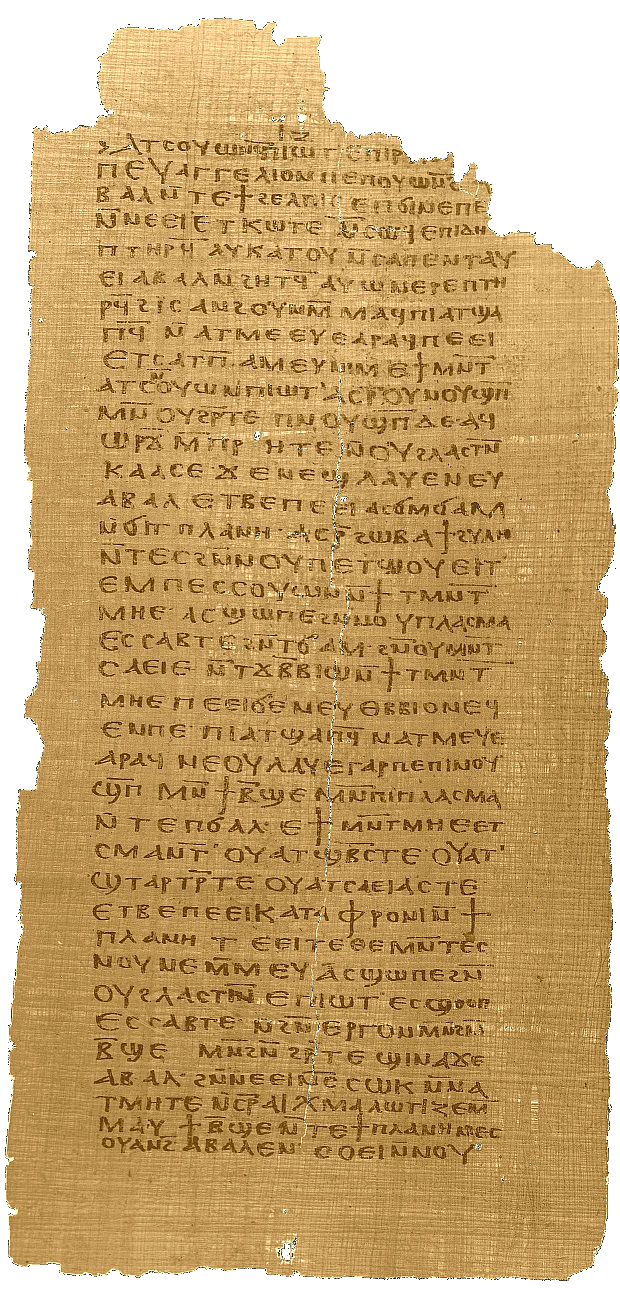 ⲓ̅ⲍ̅
ⲡⲉⲩⲁⲅⲅⲉⲗⲓⲟⲛ ⲡⲉ ⲡⲟⲩⲱⲛϩ
ⲁⲃⲁⲗ ⲛ̄ⲧⲉ ϯϩⲉⲗⲡⲓⲥ ⲉⲡϭⲓⲛⲉ ⲡⲉ
ⲛ̄ⲛⲉⲉⲓ ⲉⲧⲕⲱⲧⲉ ⲛ̄ⲥⲱϥ ⲉⲡⲓⲇⲏ
ⲡⲧⲏⲣϥ̄ ⲁⲩⲕⲁⲧⲟⲩ ⲛ̄ⲥⲁ ⲡⲉⲛⲧⲁⲩ
ⲉⲓ ⲁⲃⲁⲗ ⲛ̄ϩⲏⲧϥ̄ ⲁⲩⲱ ⲛⲉⲣⲉⲡⲧⲏ
ⲣϥ̄ ϩⲓ ⲥⲁⲛϩⲟⲩⲛ ⲙ̄ⲙⲁϥ ⲡⲓⲁⲧϣⲁ
ⲡϥ̄ ⲛ̄ⲁⲧⲙⲉⲉⲩⲉ ⲁⲣⲁϥ ⲡⲉⲉⲓ
ⲉⲧⲥⲁⲧⲡ̄ ⲁⲙⲉⲩ ⲛⲓⲙ ⲉϯⲙⲛ̄ⲧ
ⲁⲧⲥⲟⲩⲱⲛ ⲡⲓⲱⲧ ⲁⲥⲣ̄ ⲟⲩⲛⲟⲩϣⲡ̄
ⲙⲛ̄ ⲟⲩϩⲣ̄ⲧⲉ ⲡⲛⲟⲩϣⲡ̄ ⲇⲉ ⲁϥ
ⲱⲣϫ̄ ⲙ̄ⲡⲣⲏⲧⲉ ⲛ̄ⲟⲩϩⲗⲁⲥⲧⲛ̄
ⲕⲁⲁⲥⲉ ϫⲉ ⲛⲉϣ ⲗⲁⲩⲉ ⲛⲉⲩ
ⲁⲃⲁⲗ ⲉⲧⲃⲉ ⲡⲉⲉⲓ ⲁⲥϭⲙ̄ϭⲁⲙ
ⲛ̄ϭⲓ ⲧⲡⲗⲁⲛⲏ ⲁⲥⲣ̄ ϩⲱⲃ ⲁϯϩⲩⲗⲏ
ⲛ̄ⲧⲉⲥ ϩⲛ̄ⲛ ⲟⲩⲡⲉⲧϣⲟⲩⲉⲓⲧ
ⲉⲙⲡⲉⲥⲥⲟⲩⲱⲛ ⲛ̄ϯⲧⲙⲛ̄ⲧ
ⲙⲏⲉ ⲁⲥϣⲱⲡⲉ ϩⲛ̄ⲛ ⲟⲩⲡⲗⲁⲥⲙⲁ
ⲉⲥⲥⲁⲃⲧⲉ ϩⲛ̄ ⲧϭⲁⲙ ϩⲛ̄ ⲟⲩⲙⲛⲧ
ⲥⲁⲉⲓⲉ ⲛ̄ⲧϫⲃⲃⲓⲱ ⲛ̄ϯⲧⲙⲛ̄ⲧ
ⲙⲏⲉ ⲡⲉⲉⲓ ϭⲉ ⲛⲉⲩⲑⲃⲃⲓⲟ ⲛⲉϥ
ⲉⲛ ⲡⲉ ⲡⲓⲁⲧϣⲁⲡϥ̄ ⲛ̄ⲁⲧⲙⲉⲩⲉ
ⲁⲣⲁϥ ⲛⲉⲟⲩⲗⲁⲩⲉ ⲅⲁⲣ ⲡⲉ ⲡⲓⲛⲟⲩ
ϣⲡ̄ ⲙⲛ̄ ϯⲃ̄ϣⲉ ⲙⲛ̄ ⲡⲓⲡⲗⲁⲥⲙⲁ
ⲛ̄ⲧⲉ ⲡϭⲁⲗ ⲉϯⲙⲛ̄ⲧⲙⲏⲉ ⲉⲧ
ⲥⲙⲁⲛⲧ ⲟⲩⲁⲧϣⲃ̄ⲥ ⲧⲉ ⲟⲩⲁⲧ
ϣⲧⲁⲣⲧⲣ̄ ⲧⲉ ⲟⲩⲁⲧⲥⲁⲉⲓⲁⲥ ⲧⲉ
ⲉⲧⲃⲉ ⲡⲉⲉⲓ ⲕⲁⲧⲁⲫⲣⲟⲛⲓ ⲛ̄ϯ
ⲡⲗⲁⲛⲏ ⲧⲉⲉⲓ ⲧⲉ ⲑⲉ ⲙⲛ̄ⲧⲉⲥ
ⲛⲟⲩⲛⲉ ⲙ̄ⲙⲉⲩ ⲁⲥϣⲱⲡⲉ ϩⲛ̄
ⲟⲩϩⲗⲁⲥⲧⲛ̄ ⲉⲡⲓⲱⲧ ⲉⲥϣⲟⲟⲡ
ⲉⲥⲥⲁⲃⲧⲉ ⲛ̄ϩⲛ̄ⲉⲣⲅⲟⲛ ⲙⲛ̄ ϩⲛ̄
ⲃ̄ϣⲉ ⲙⲛ̄ ϩⲛ̄ϩⲣ̄ⲧⲉ ϣⲓⲛⲁ ϫⲉ
ⲁⲃⲁⲗ ϩⲛ̄ ⲛⲉⲉⲓ ⲛ̄ⲥⲥⲱⲕ ⲛ̄ⲛⲁ
ⲧⲙⲏⲧⲉ ⲛ̄ⲥⲣ̄ⲁⲓⲭⲙⲁⲗⲱⲧⲓⲍⲉ ⲙ̄
ⲙⲁⲩ ϯⲃ̄ϣⲉ ⲛ̄ⲧⲉ ϯⲡⲗⲁⲛⲏ ⲛⲉⲥ
ⲟⲩⲁⲛϩ ⲁⲃⲁⲗ ⲉⲛ ⲥⲟⲉⲓ ⲛ̄ⲛⲟⲩ